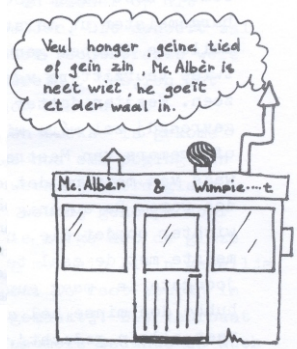 Veul honger, geine tied
of gein zin, Mc. Albèr is
neet wiet, he goeit
et der waal in.
Mc. Albèr & Wimpie....t